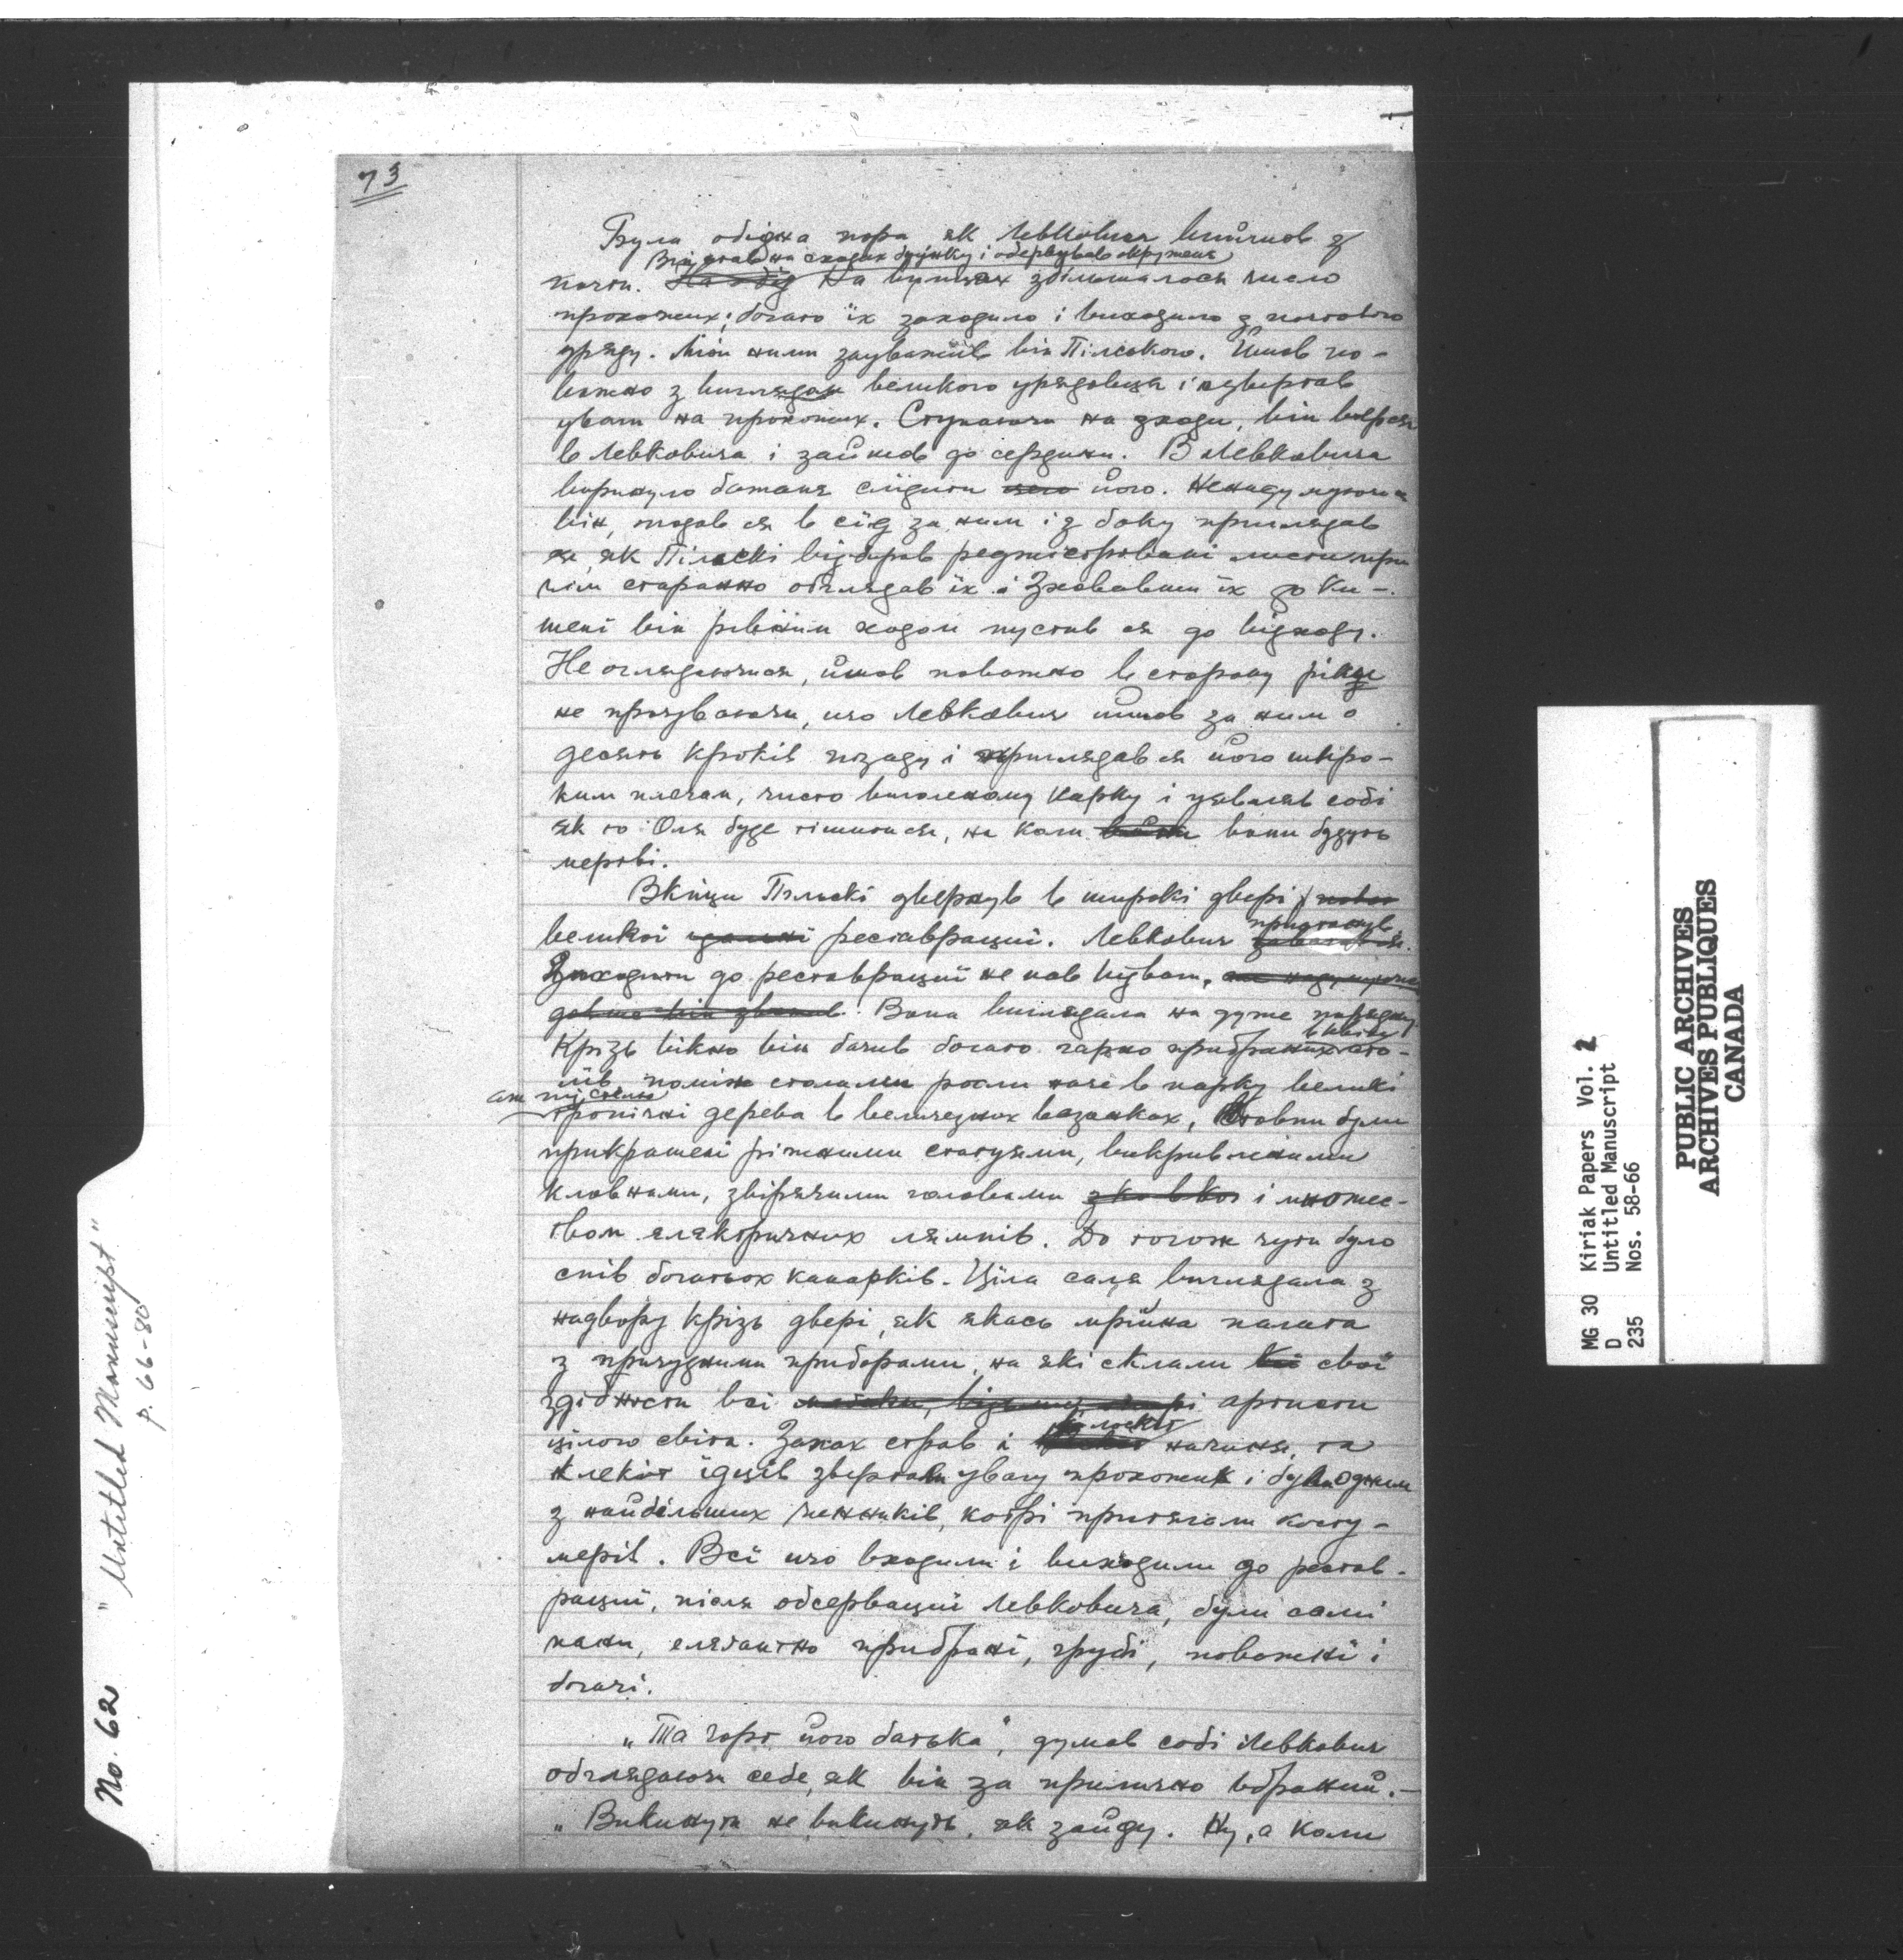 73
Була обідна пора як Левкович вийшов з
Він став на сходах будинку і обсервував окруженя
почти. На обід На вулицях збільшалося число
прохожих; богато їх заходило і виходило з почтового
уряду. Між ними зауважив він Пільского. Йшов по-
важно з виглядом великого урядовця і звертав
уваги на прохожих. Ступаючи на зходи, він
в Левковича і зайшов до середини. В Левковича
виринуло бажаня слідити його. Ненадумуючися
він, подав ся в слід за ним і з боку приглядав
ся, як Пільскі відбирав реджістровані листи при
чім старанно оглядав їх і Зховавши їх до ки-
шені він рівним ходом пустив ся до відходу.
Не оглядаючися, йшов поважно в сторону ріки
не прочуваючи, що Левкович йшов за ним о
десять кроків позаду і приглядав ся його широ-
ким плечам, чисто виголеному карку і уявляв собі
як то Оля буде тішитися, на коли вони будуть
мертві.
Вкінци Пільскі звернув в широкі двері
великої реставрації. Левкович пристанув.
Заходити до реставрації не мав відваги.
довше він . Вона виглядала на дуже порядну.
Крізь вікно він бачив богато гарно прибраних сто-
лів, поміж столами росли наче в парку великі
аж під стелю
тропічні дерева в величезних вазонках, Стовпи були
прикрашені ріжними статуями, викривленими
кловнами, звірячими головами і множес-
твом елєктричних лямпів. До тогож чути було
спів богатьох канарків. Ціла саля виглядала з
надвору крізь двері, як якась мрійна палата
з причудними приборами, на які склали свої
здібности всі артисти
цілого світа. Запах страв і начиня, та
клекіт їдців звертали увагу прохожих і були одним
з найбільших чинників, котрі притягали косту-
мерів. Всі що входили і виходили до реставр-
рації, після обсервації Левковича, були самі
пани, елєґантно прибрані, грубі, поважні і
богачі.
„Та чорт його батька", думав собі Левкович
обглядаючи себе, як він за прилично вбраний.—
„Викинути не викинуть, як зайду. Ну, а коли
No. 62 "Untitled Manuscript"
p. 66-80
MG 30 Kiriak Papers Vol. 2
D Untitled Manuscript
235 Nos. 58-66
PUBLIC ARCHIVES
ARCHIVES PUBLIQUES
CANADA